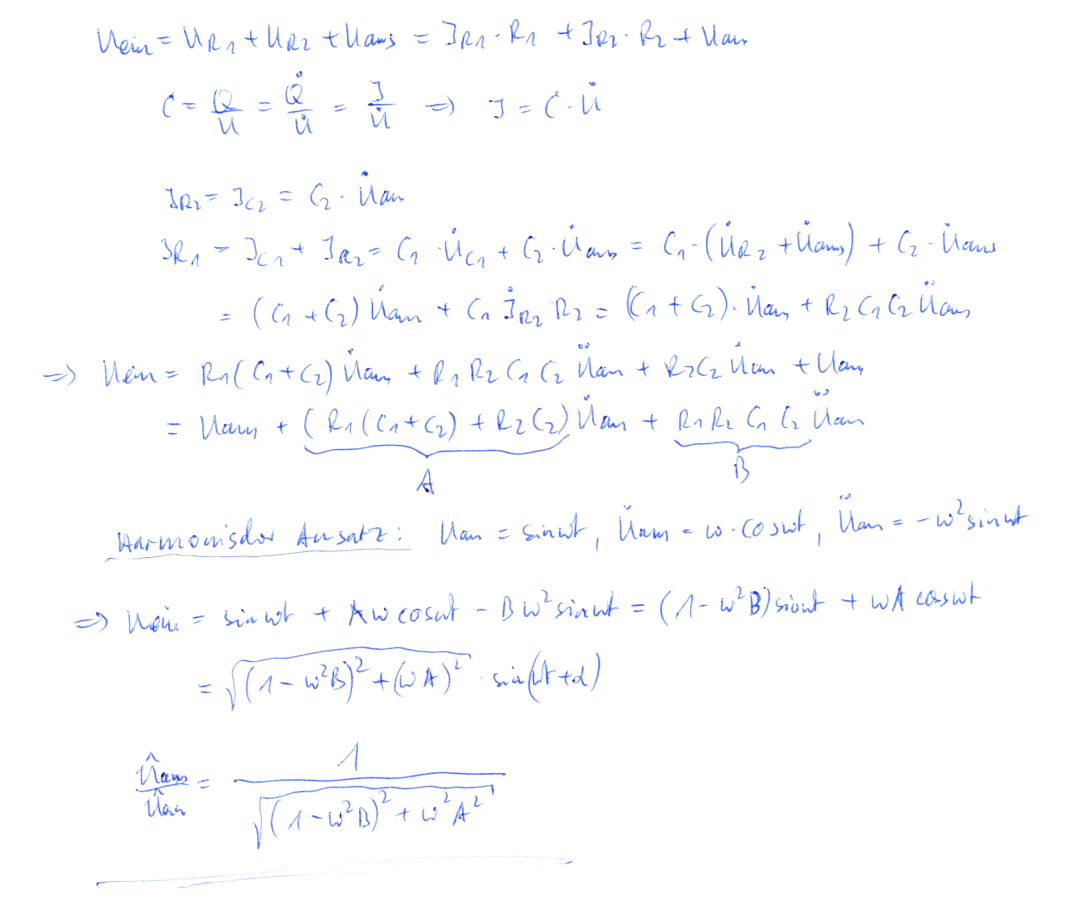 Uein = UR1 + UR2 + Uaus = IR1 · R1 + IR2 · R2 + Uaus
C = Q/U = Q̇/U̇ = I/U̇ => I = C · U̇
IR2 = IC2 = C2 · U̇aus
IR1 = IC1 + IR2 = C1 · U̇C1 + C2 · U̇aus = C1 · (U̇R2 + U̇aus) + C2 · U̇aus
= (C1 + C2) U̇aus + C1 İR2 R2 = (C1 + C2) · U̇aus + R2 C1 C2 Üaus
=> Uein = R1(C1 + C2) U̇aus + R1 R2 C1 C2 Üaus + R2C2 U̇aus + Uaus
= Uaus + (R1(C1 + C2) + R2C2) U̇aus + R1 R2 C1 C2 Üaus
A B
Harmonischer Ansatz: Uaus = sinωt, U̇aus = ω · cosωt, Üaus = -ω² sinωt
=> Uein = sinωt + Aω cosωt - Bω² sinωt = (1 - ω²B) sinωt + ωA cosωt
= √((1 - ω²B)² + (ωA)²) · sin(ωt + α)
Ûaus/Ûaus = 1/√((1 - ω²B)² + ω²A²)